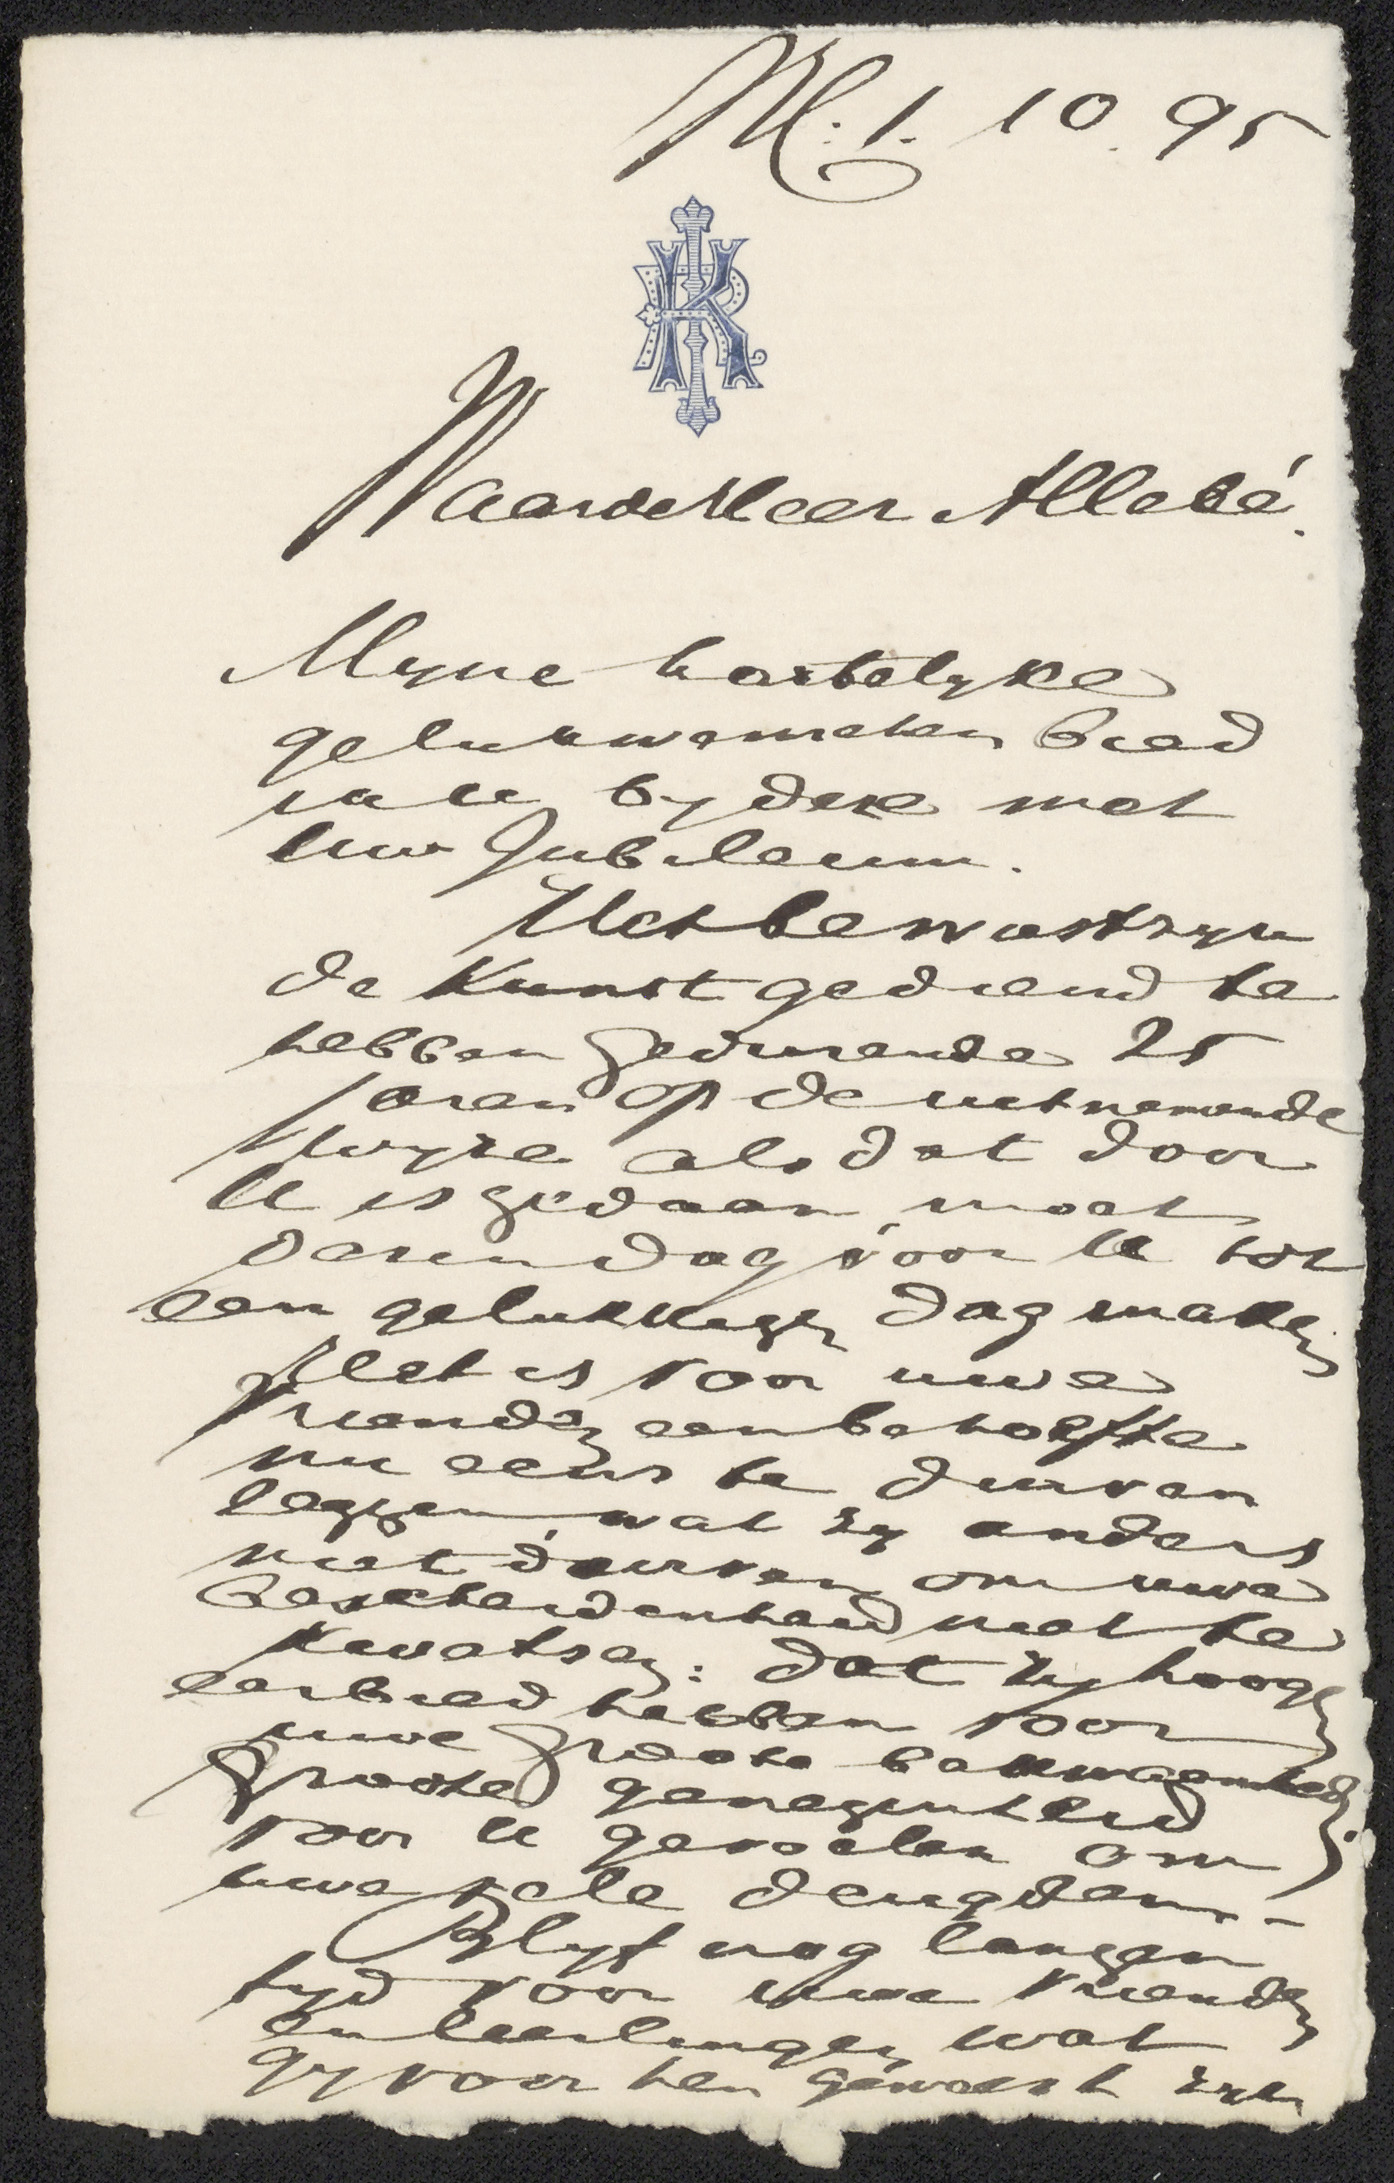 H. 1. 10. 95
KR
Waarde Heer Allebé.
Myne hartelyke
gelukwenschen bied
ik U by deze met
Uw Jubileum.
Het bewustzyn
de Kunst gediend te
hebben gedurende 25
jaren op de uitnemende
wyze als dat door
U is gedaan moet
dezen dag voor U tot
een gelukkigen dag maken
Het is voor uwe
vrienden een behoefte
nu eens te durven
zeggen wat zy anders
niet durven om uwe
bescheidenheid niet te
kwetsen: dat zy hoogen
eerbied hebben voor
uwe groote bekwaamheden;
groote genegenheid
voor U gevoelen om
uwe vele deugden.-
Blyf nog langen
tyd voor uwe vrienden
en leerlingen wat
gy voor hen geweest zyt